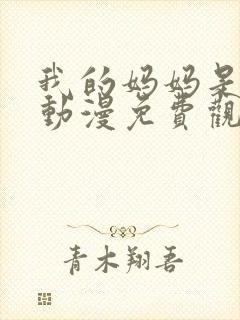 我的妈妈是
動漫免費觀
青木翔吾